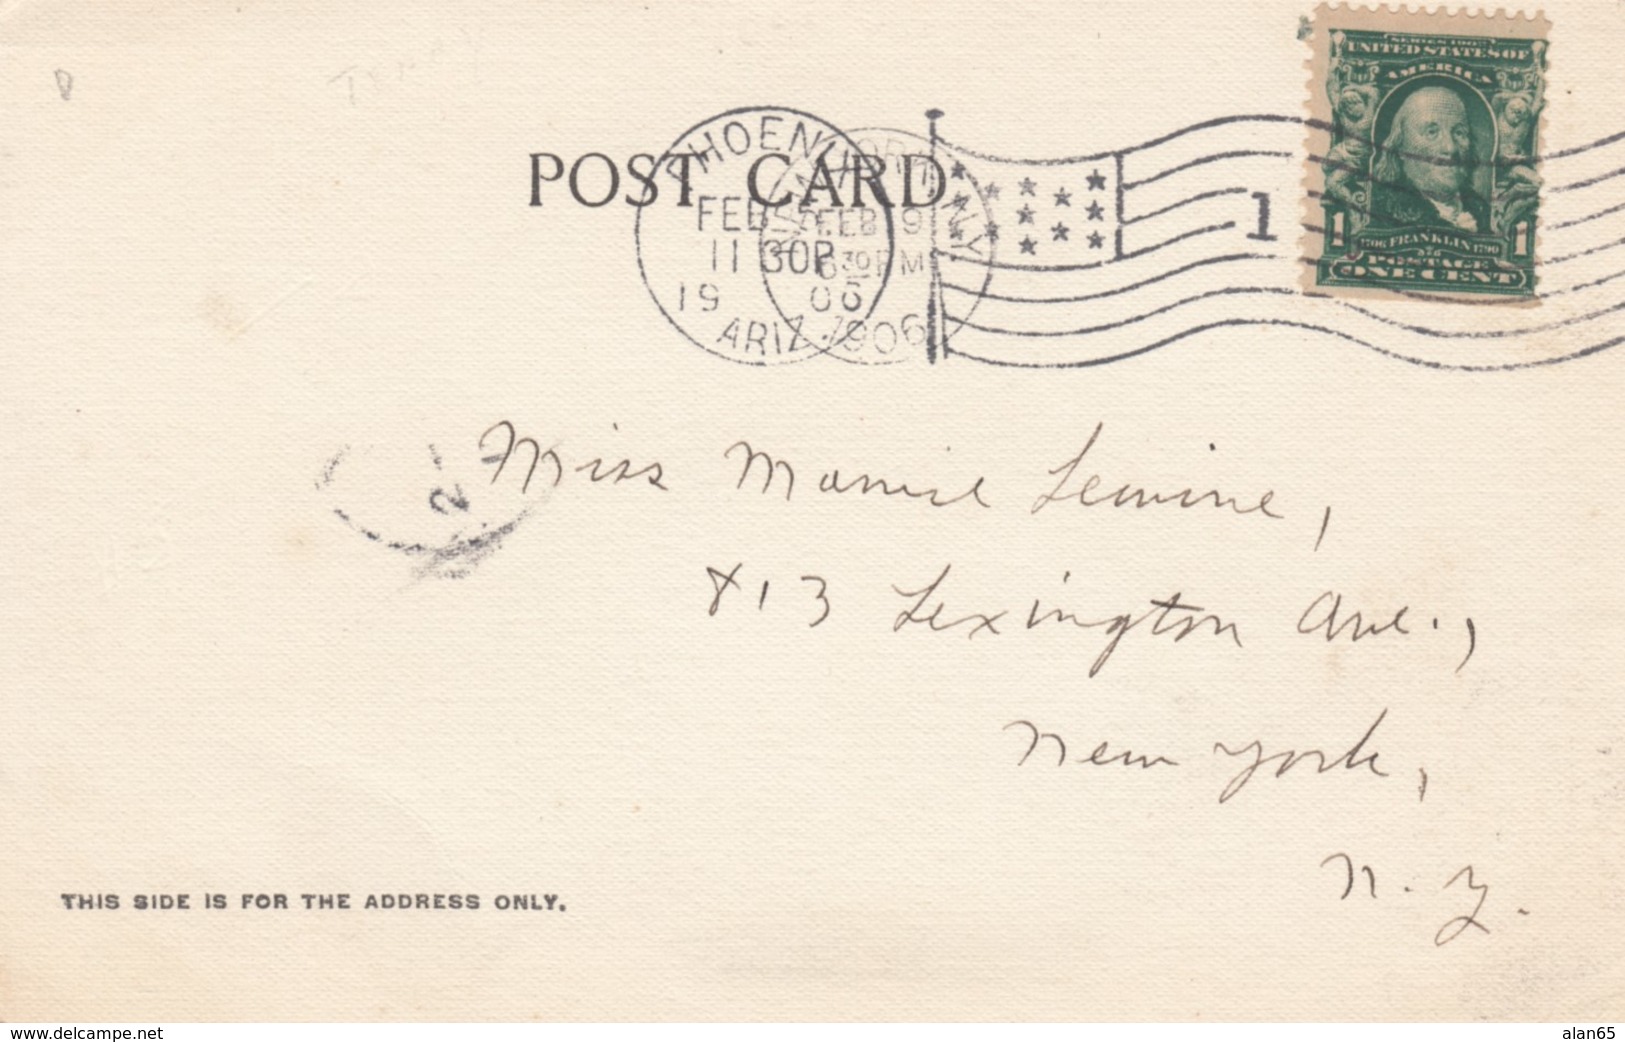 POST CARD
PHOENIX
FEB 5
11 30P
19 06
ARIZ.
FEB 9
6 30 PM
N.Y.
1906
1
SERIES 1902
UNITED STATES OF
AMERICA
1 1
1706 FRANKLIN 1790
POSTAGE
ONE CENT
2
Miss Mamie Lewine,
813 Lexington Ave.,
New York,
N. Y.
THIS SIDE IS FOR THE ADDRESS ONLY.
www.delcampe.net
alan65